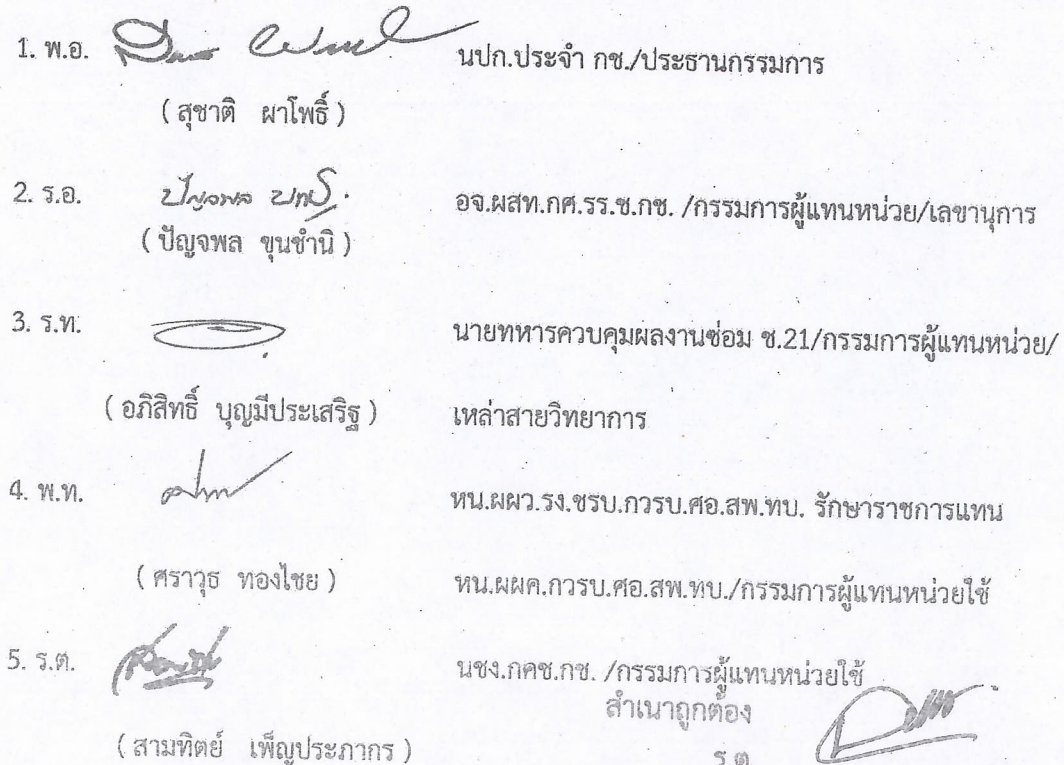 1. พ.อ. นปก.ประจำ กช./ประธานกรรมการ
( สุชาติ ผาโพธิ์ )
2. ร.อ. ปัญจพล อจ.ผสท.กศ.รร.ช.กช. /กรรมการผู้แทนหน่วย/เลขานุการ
( ปัญจพล ขุนชำนิ )
3. ร.ท. นายทหารควบคุมผลงานซ่อม ช.21/กรรมการผู้แทนหน่วย/
( อภิสิทธิ์ บุญมีประเสริฐ ) เหล่าสายวิทยาการ
4. พ.ท. หน.ผผว.รง.ซรบ.กวรบ.ศอ.สพ.ทบ. รักษาราชการแทน
( ศราวุธ ทองไชย ) หน.ผผค.กวรบ.ศอ.สพ.ทบ./กรรมการผู้แทนหน่วยใช้
5. ร.ต. นชง.กคช.กช. /กรรมการผู้แทนหน่วยใช้
สำเนาถูกต้อง
( สามทิตย์ เพ็ญประภากร ) ร.ต.